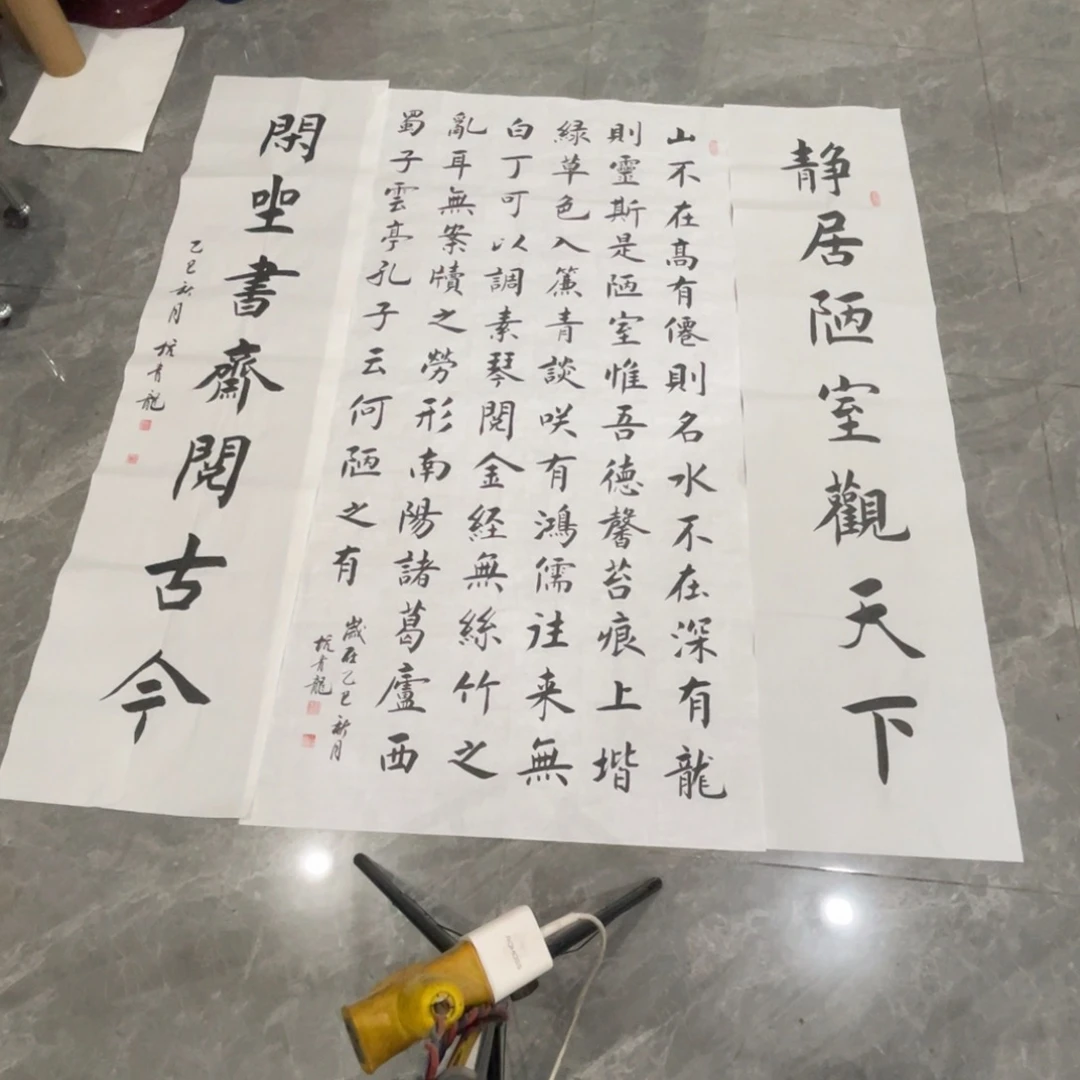 静居陋室觀天下
山不在髙有僊則名水不在深有龍
則靈斯是陋室惟吾德馨苔痕上堦
緑草色入簾青談咲有鴻儒往来無
白丁可以調素琴閱金経無絲竹之
亂耳無案牘之勞形南陽諸葛廬西
蜀子雲亭孔子云何陋之有
歲在乙巳新月
青龍
閑坐書齋閱古今
乙巳新月 青龍